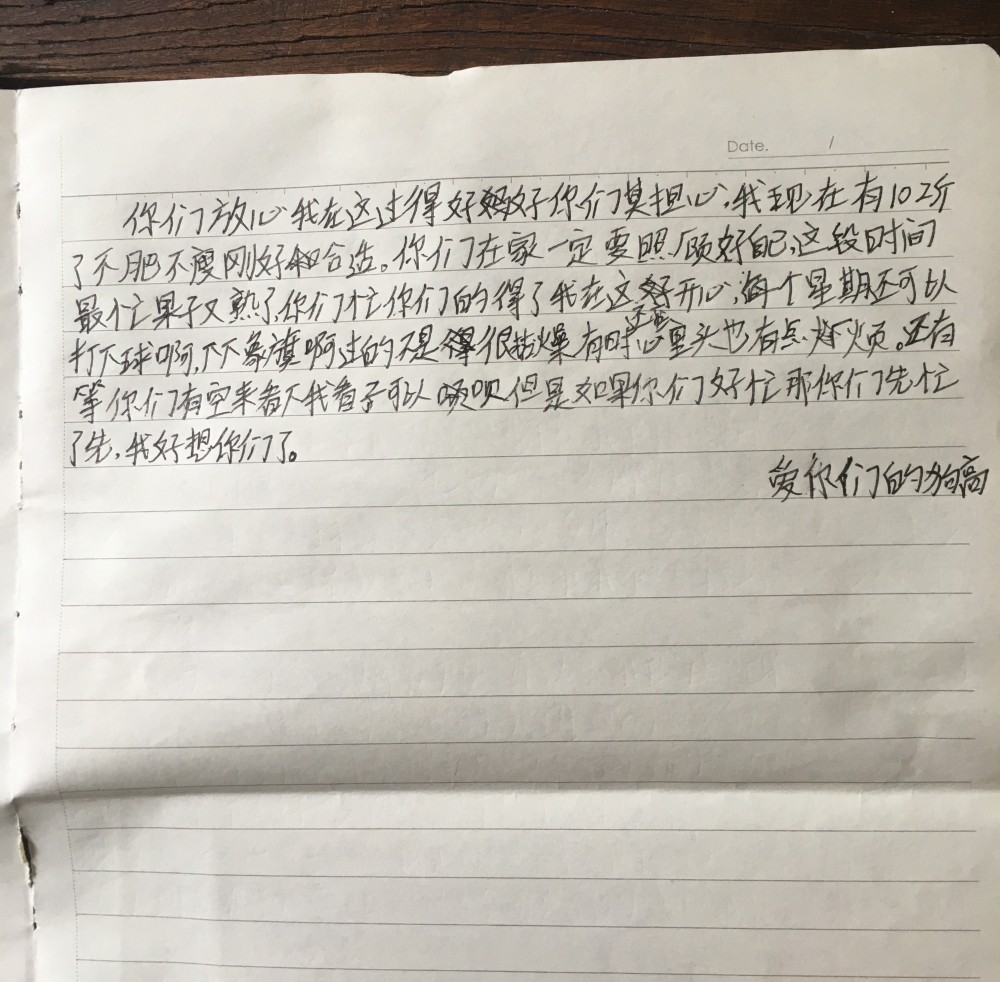 Date. /
你们放心我在这过得好好你们莫担心,我现在有102斤
了不肥不廋刚好合造。你们在家一定要照顾好自己,这段时间
最忙果子又熟了,你们忙你们的得了我在这好开心,每个星期还可以
打下球啊,下下象旗啊过的不是很枯燥有时还要心里头也有点烦。还有
等你们有空来看下我看子可以呗但是如果你们好忙那你们先忙
了先,我好想你们了。
爱你们的狗高